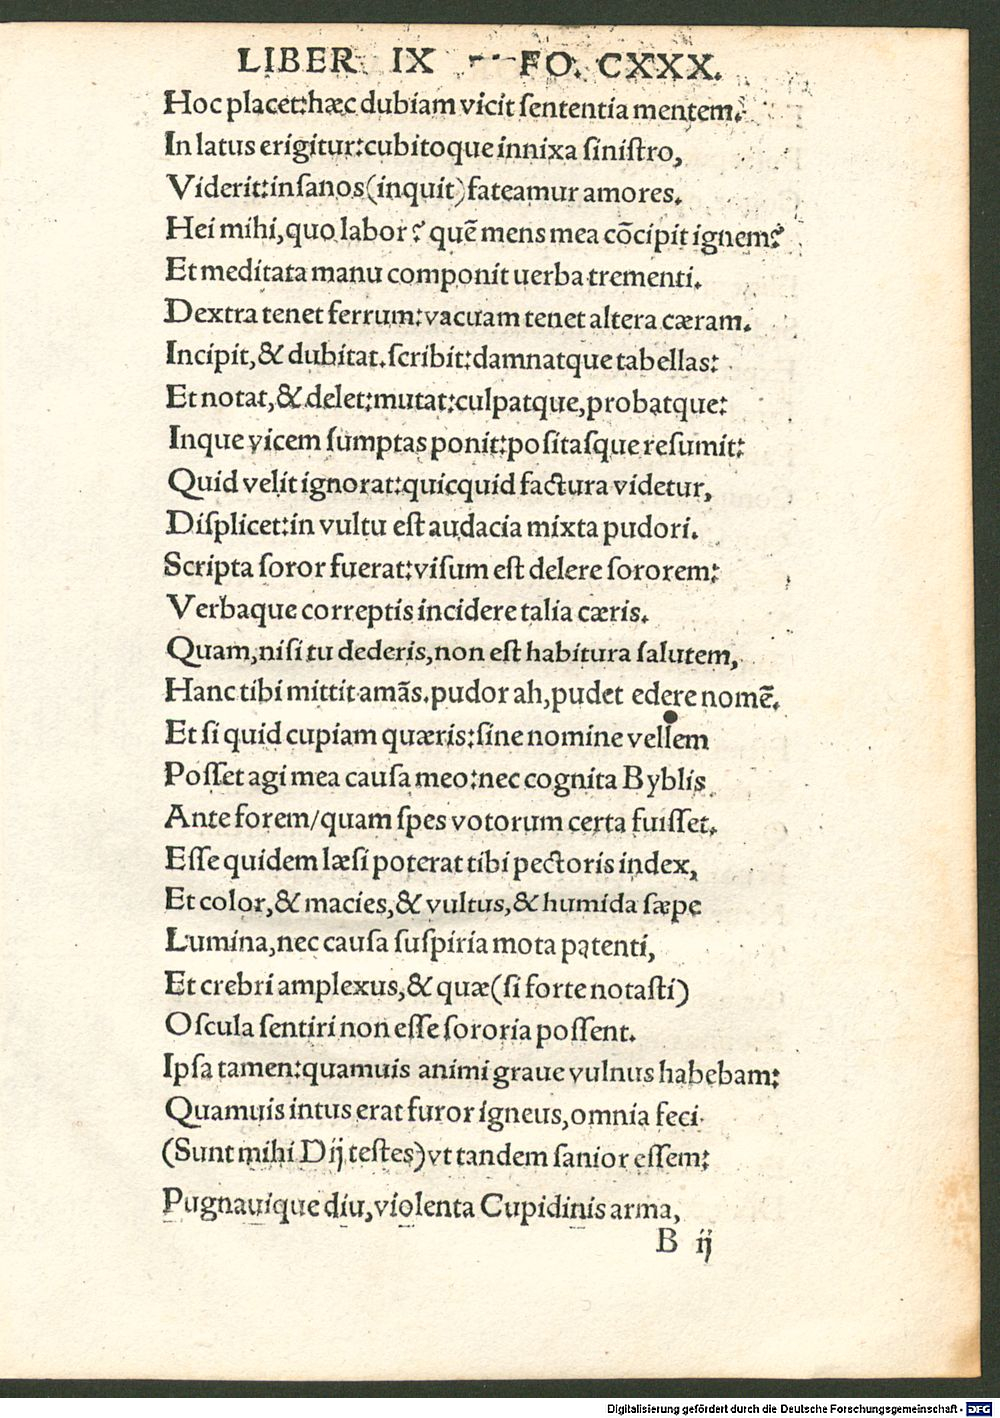 LIBER IX FO. CXXX.
Hoc placet:hæc dubiam vicit ſententia mentem.
In latus erigitur:cubitoque innixa ſiniſtro,
Viderit:inſanos(inquit)fateamur amores.
Hei mihi,quo labor? quẽ mens mea cõcipit ignem?
Et meditata manu componit uerba trementi.
Dextra tenet ferrum:vacuam tenet altera cæram.
Incipit,& dubitat.ſcribit:damnatque tabellas:
Et notat,& delet:mutat:culpatque,probatque:
Inque vicem ſumptas ponit:poſitaſque reſumit:
Quid velit ignorat:quicquid factura videtur,
Diſplicet:in vultu eſt audacia mixta pudori.
Scripta ſoror fuerat:viſum eſt delere ſororem:
Verbaque correptis incidere talia cæris.
Quam,niſi tu dederis,non eſt habitura ſalutem,
Hanc tibi mittit amãs.pudor ah,pudet edere nomẽ.
Et ſi quid cupiam quæris:ſine nomine vellem
Poſſet agi mea cauſa meo:nec cognita Byblis
Ante forem/quam ſpes votorum certa fuiſſet.
Eſſe quidem læſi poterat tibi pectoris index,
Et color,& macies,& vultus,& humida ſæpe
Lumina,nec cauſa ſuſpiria mota patenti,
Et crebri amplexus,& quæ(ſi forte notaſti)
Oſcula ſentiri non eſſe ſororia poſſent.
Ipſa tamen:quamuis animi graue vulnus habebam:
Quamuis intus erat furor igneus,omnia feci
(Sunt mihi Dij teſtes)vt tandem ſanior eſſem:
Pugnauique diu,violenta Cupidinis arma,
B ij
Digitalisierung gefördert durch die Deutsche Forschungsgemeinschaft - DFG